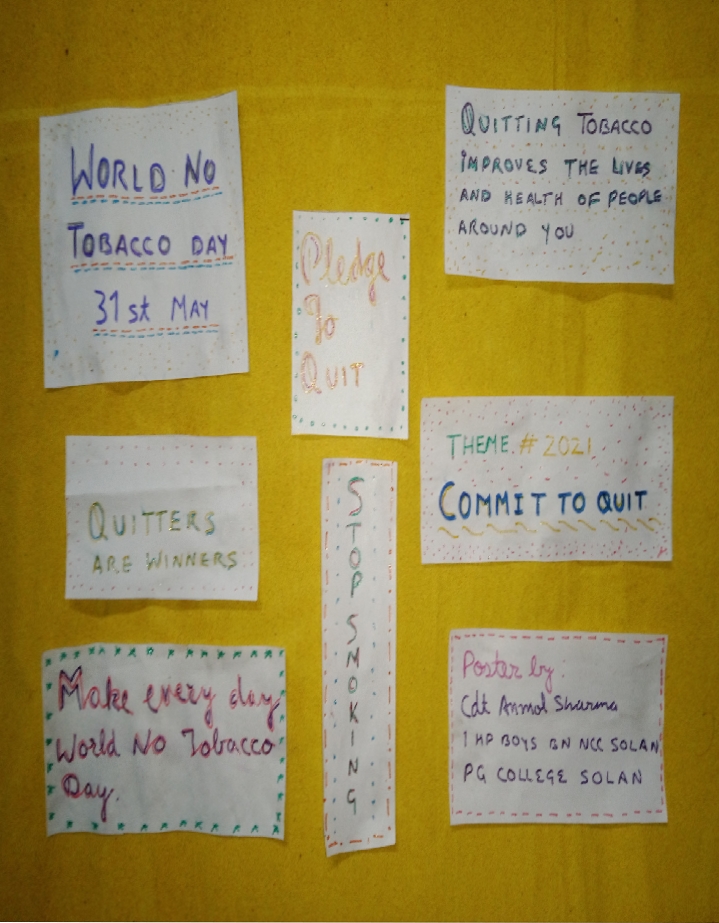 WORLD NO
TOBACCO DAY
31st MAY
QUITTING TOBACCO
IMPROVES THE LIVES
AND HEALTH OF PEOPLE
AROUND YOU
Pledge
To
QUIT
THEME # 2021
COMMIT TO QUIT
QUITTERS
ARE WINNERS
STOP SMOKING
Make every day
World No Tobacco
Day.
Poster by:
Cdt Anmol Sharma
1 HP BOYS BN NCC SOLAN
PG COLLEGE SOLAN